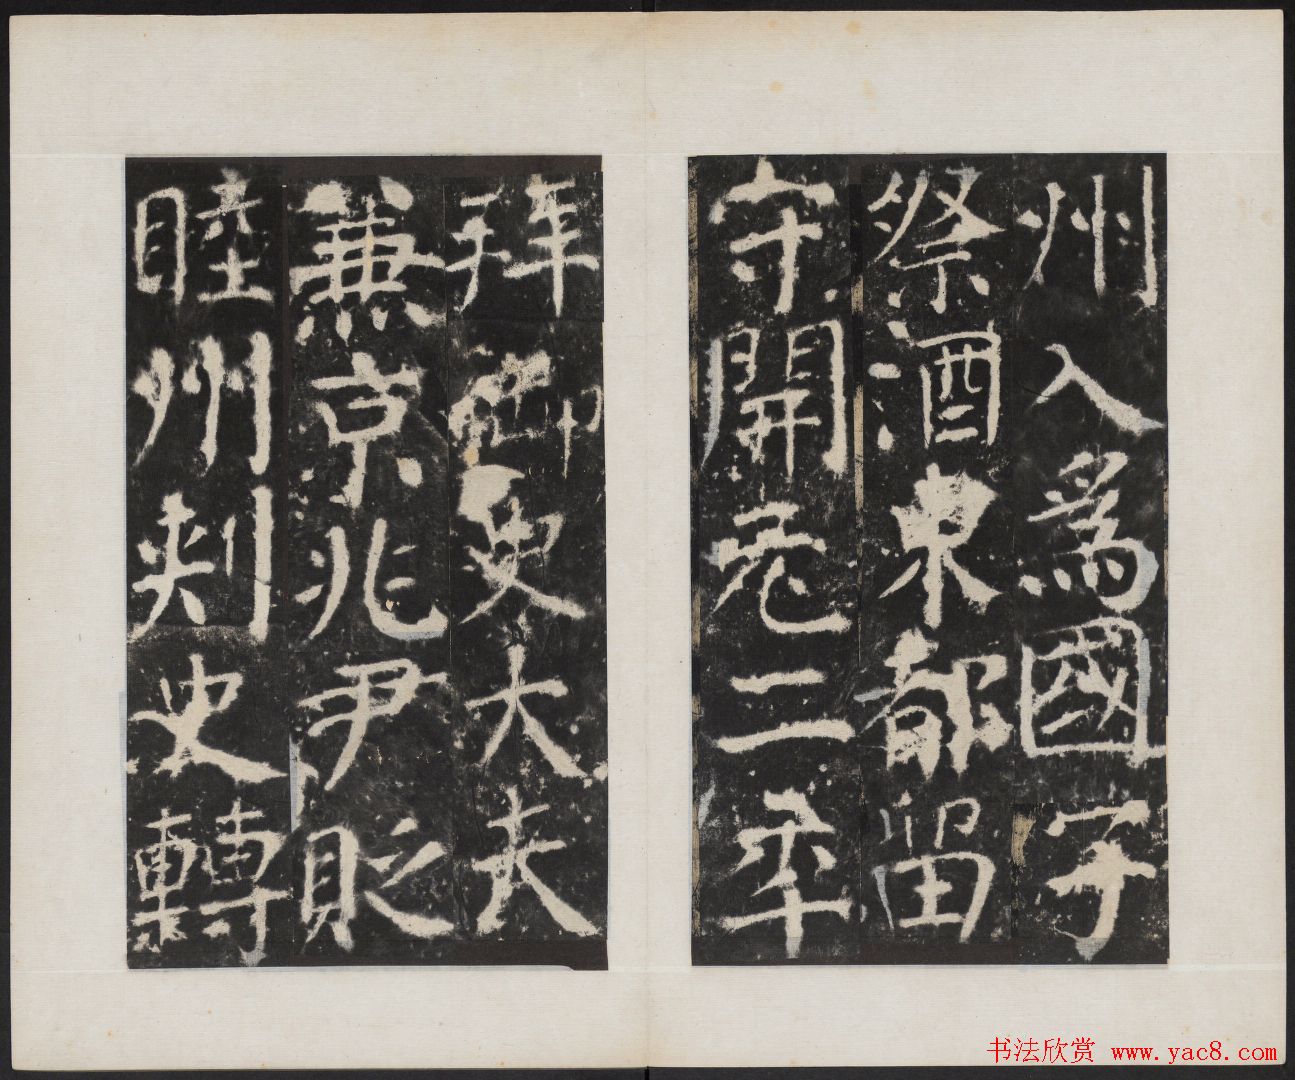 州入爲國子
祭酒東都留
守開元二年
拜御史大夫
兼京兆尹貶
睦州刺史轉
书法欣赏 www.yac8.com